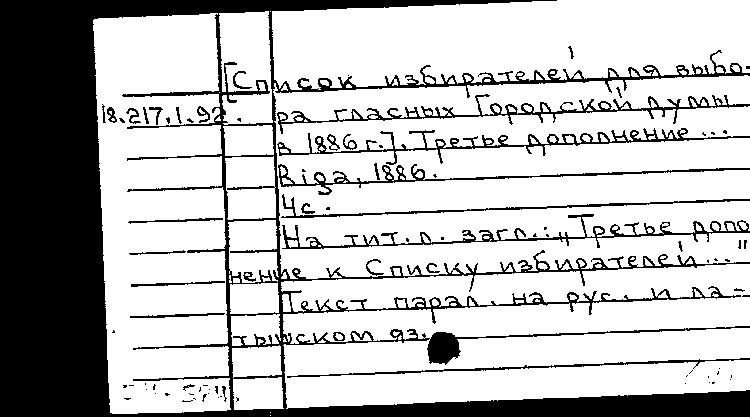 [Список избирателей для выбо-
18.217.1.92. ра гласных Городской думы
в 1886 г.]. Третье дополнение...
Riga, 1886.
4с.
На тит. л. загл.: „Третье допо
нение к Списку избирателей..."
Текст парал. на рус. и ла-
тышском яз.